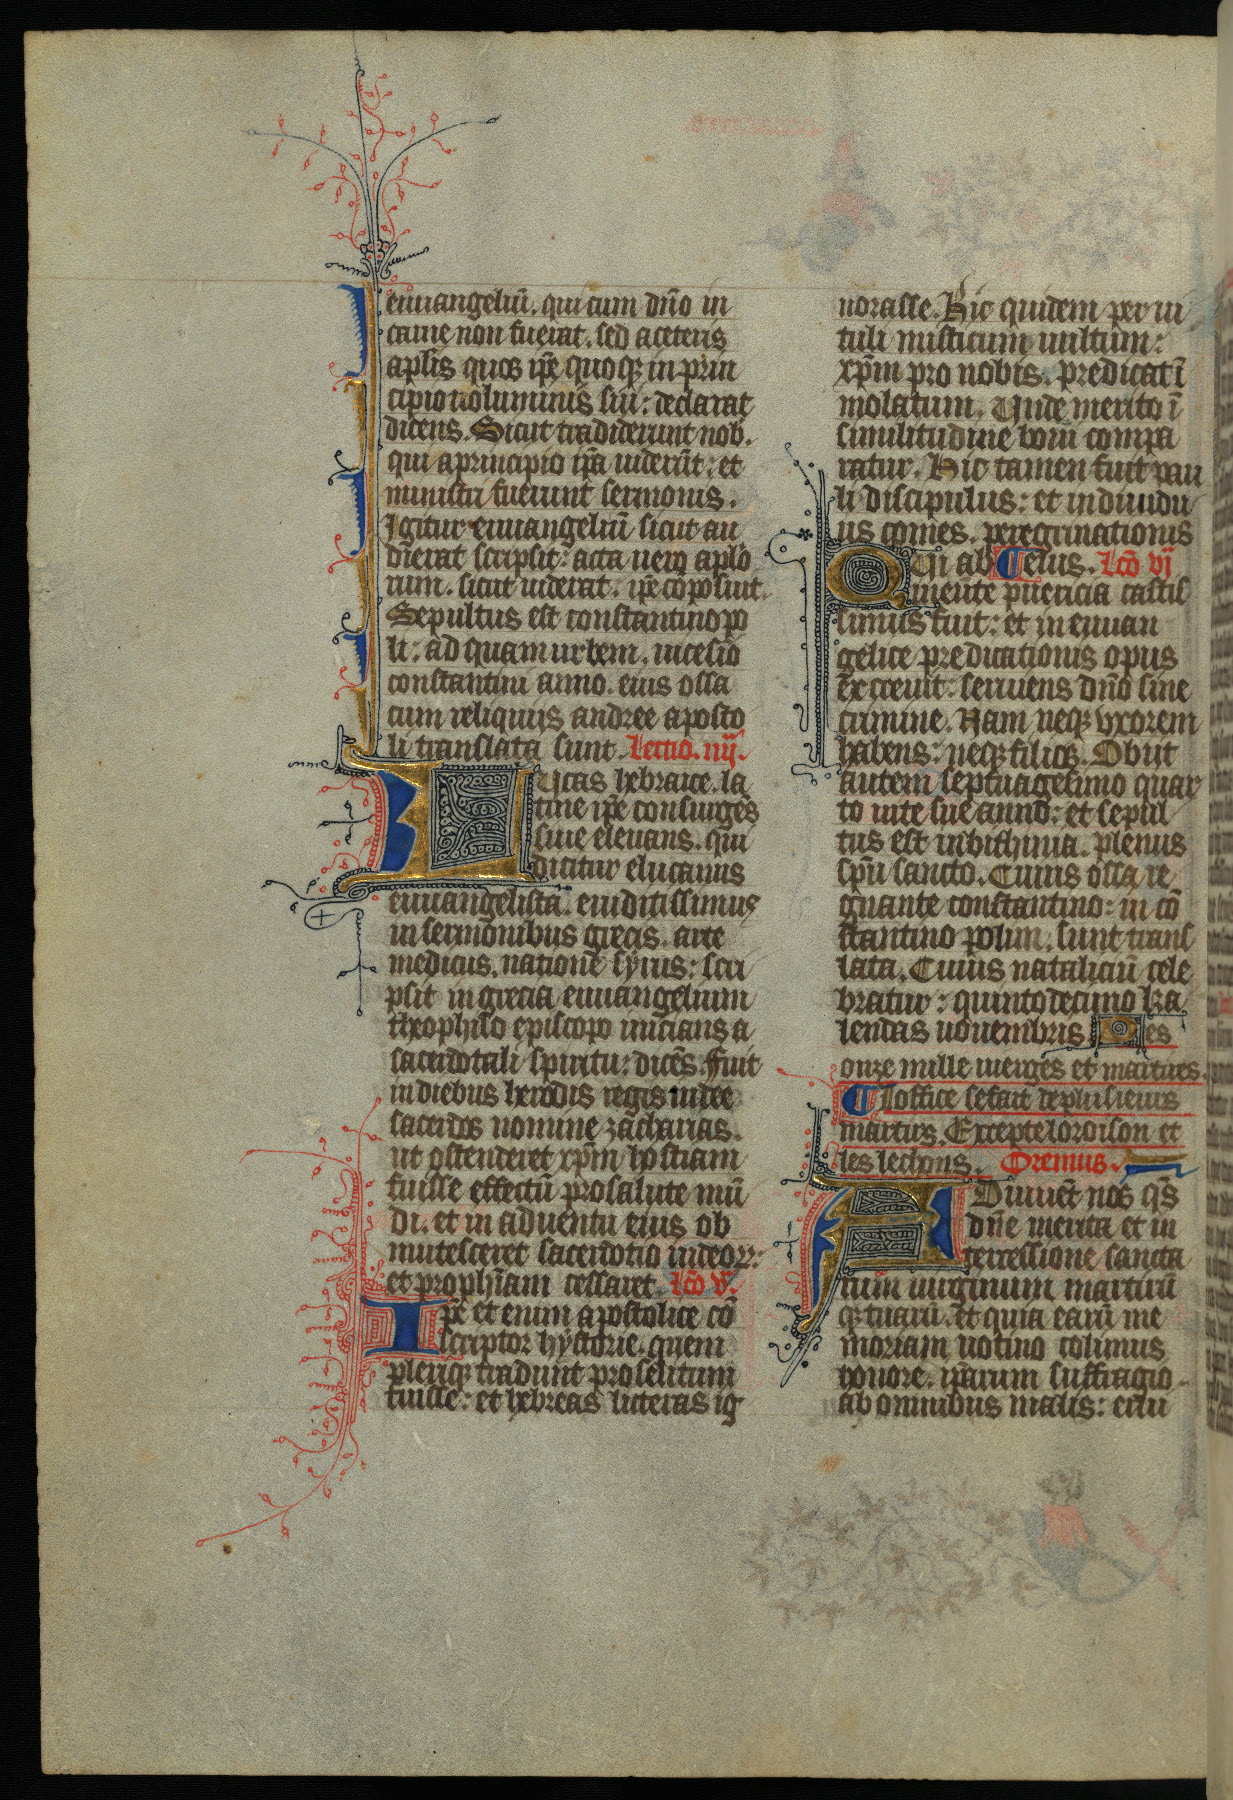 euuangeliū. qui cum dn̄o in
carne non fuerat. sed a ceteris
apl̄is quos ip̄e quoqꝫ in prin
cipio uoluminis sui: declarat
dicens. Sicut tradiderunt nob.
qui a principio ip̄a uiderūt: et
ministri fuerunt sermonis.
Igitur euuangeliū sicut au
dierat scripsit: acta uero aplo
rum. sicut uiderat. ip̄e cōposuit.
Sepultus est constantinopo
li: ad quam urbem. uicesio
constantini anno. eius ossa
cum reliquiis andree aposto
li translata sunt. Lectio. iiij.
Lucas hebraice. la
tine ip̄e consurgēs
siue eleuans. qui
dicitur elucanus
euuangelista. eruditissimus
in sermonibus grecis. arte
medicus. natione syrus: scri
psit in grecia euuangelium
theophilo episcopo inicians a
sacerdotali spiritu: dicēs. Fuit
in diebus herodis regis iudee
sacerdos nomine zacharias.
ut ostenderet xp̄m hostiam
fuisse effectū pro salute mū
di. et in aduentu eius ob
mutesceret sacerdotio iudeoꝝ:
et proph̄iam cessaret. Lcō v̄.
Ip̄e et enim apostolice cō
scriptor hystorie. quem
pleriqꝫ tradunt proselitum
fuisse: et hebreas litteras ig
norasse. Hic quidem per ui
tuli misticum uultum:
xp̄m pro nobis. predicat ī
molatum. Unde merito ī
similitudine boui compa
ratur. Hic tamen fuit pau
li discipulus: et indiuidu
us comes. peregrinationis
Qui ab eius. Lcō vj
ineūte puericia castis
simus fuit: et in euuan
gelice predicationis opus
excreuit: seruiens dn̄o sine
crimine. Nam neqꝫ vxorem
habens: neqꝫ filios. Obijt
autem septuagesimo quar
to uite sue anno: et sepul
tus est in bithinia. plenus
sp̄u sancto. Cuius ossa re
gnante constantino: in cō
stantino polim. sunt trans
lata. Cuius natalicuū cele
bratur: quinto decimo ka
lendas nouembris Des
onze mille uierges et martires.
Loffice se fait de plusieurs
martirs. Excepte loroison et
les lechons. Oremus.
Adiuuēt nos q̄s
dn̄e merita et in
tercessione sancta
rum uirginum martirū
qꝫ tuarū. et quia earū me
moriam uotiuo colimus
honore. ip̄arum suffragio
ab omnibus malis: erui